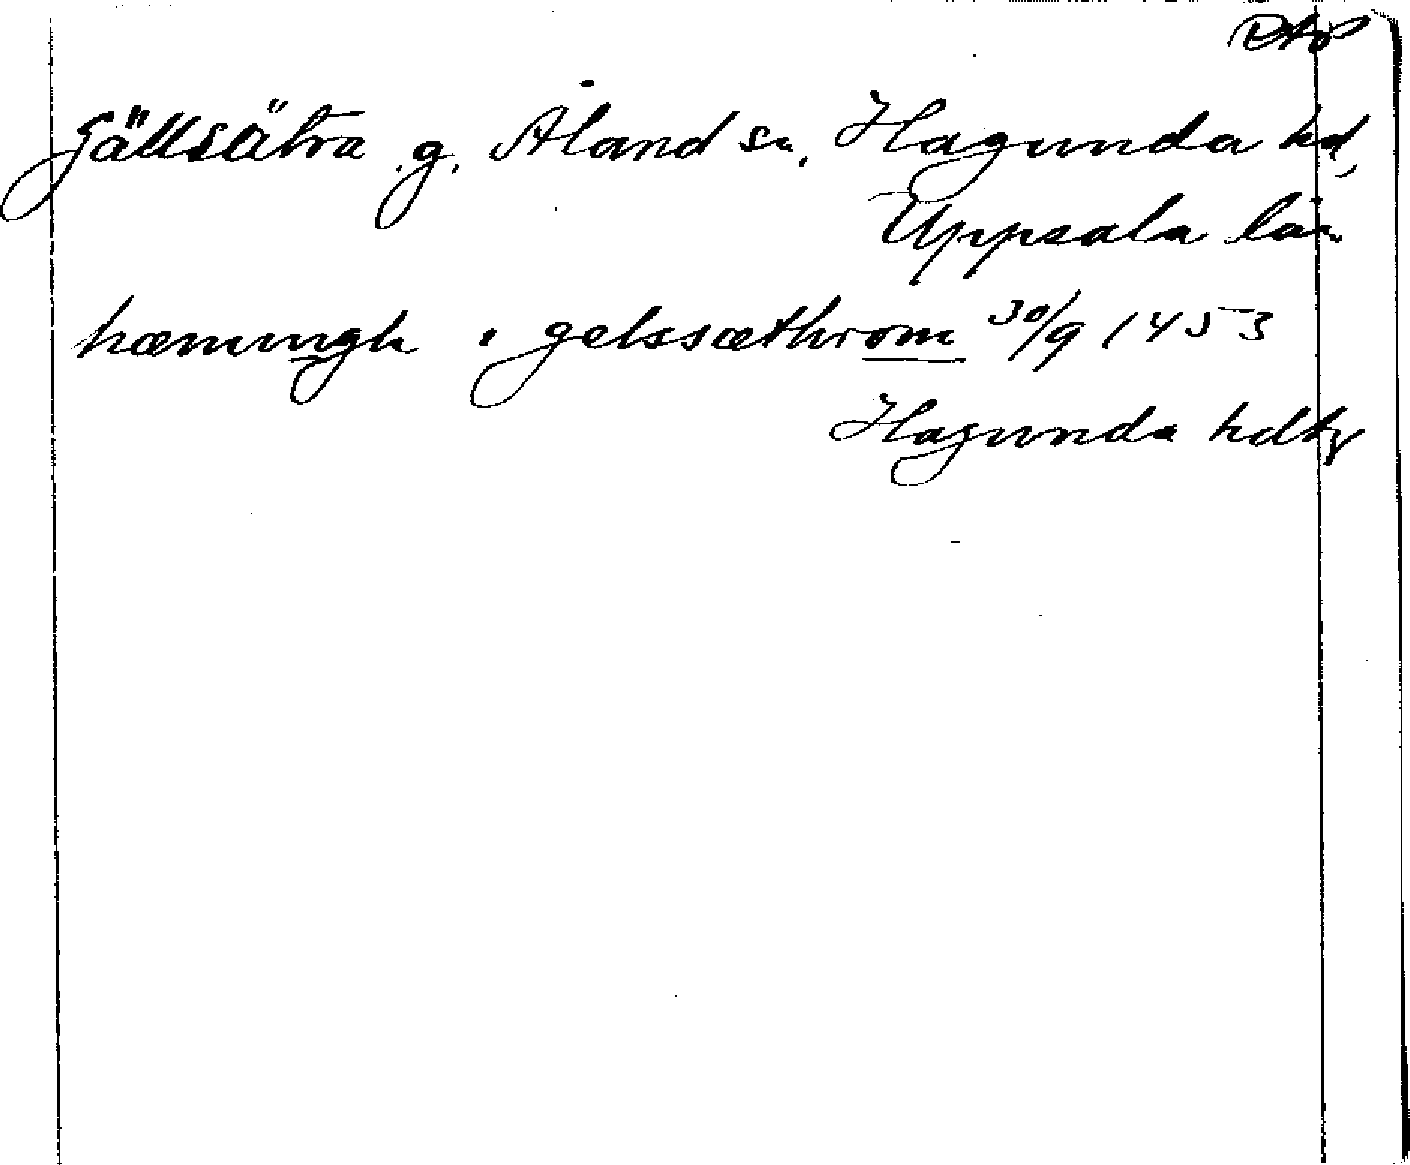 Gällsätra g. Åland sn. Hagunda hd,
Uppsala län
hæmingh i gelssæthrom 30/9 1453
Hagunda hdtg